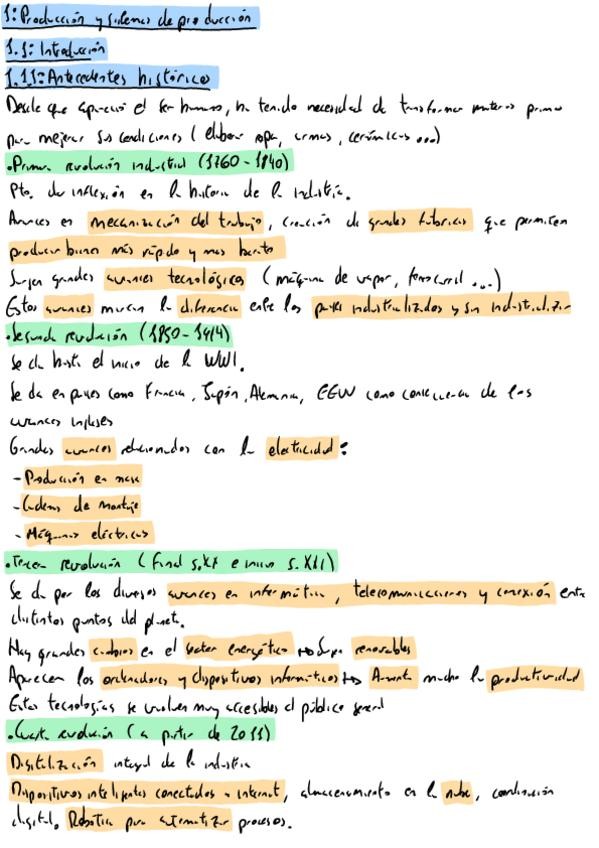 1: Producción y sistemas de producción
1.1: Introducción
1.1.1: Antecedentes históricos
Desde que apareció el ser humano, ha tenido necesidad de transformar materias primas
para mejorar sus condiciones (elaborar ropa, armas, cerámicas...)
•Primera revolución industrial (1760-1840)
Pto. de inflexión en la historia de la industria.
Avances en mecanización del trabajo, creación de grandes fábricas que permiten
producir bienes más rápido y mas barato
Surgen grandes avances tecnológicos (máquina de vapor, ferrocarril...)
Estos avances marcan la diferencia entre los países industrializados y sin industrializar
•Segunda revolución (1850-1914)
Se da hasta el inicio de la WWI.
Se da en países como Francia, Japón, Alemania, EEUU como consecuencia de los
avances ingleses
Grandes avances relacionados con la electricidad:
- Producción en masa
- Cadena de montaje
- Máquinas eléctricas
•Tercera revolución (Final s.XX e inicio s.XXI)
Se da por los diversos avances en informática, telecomunicaciones y conexión entre
distintos puntos del planeta.
Hay grandes cambios en el sector energético → Surgen renovables
Aparecen los ordenadores y dispositivos informáticos → Aumenta mucho la productividad
Estas tecnologías se vuelven muy accesibles al público general
•Cuarta revolución (a partir de 2011)
Digitalización integral de la industria
Dispositivos inteligentes conectados a internet, almacenamiento en la nube, coordinación
digital. Robótica para automatizar procesos.